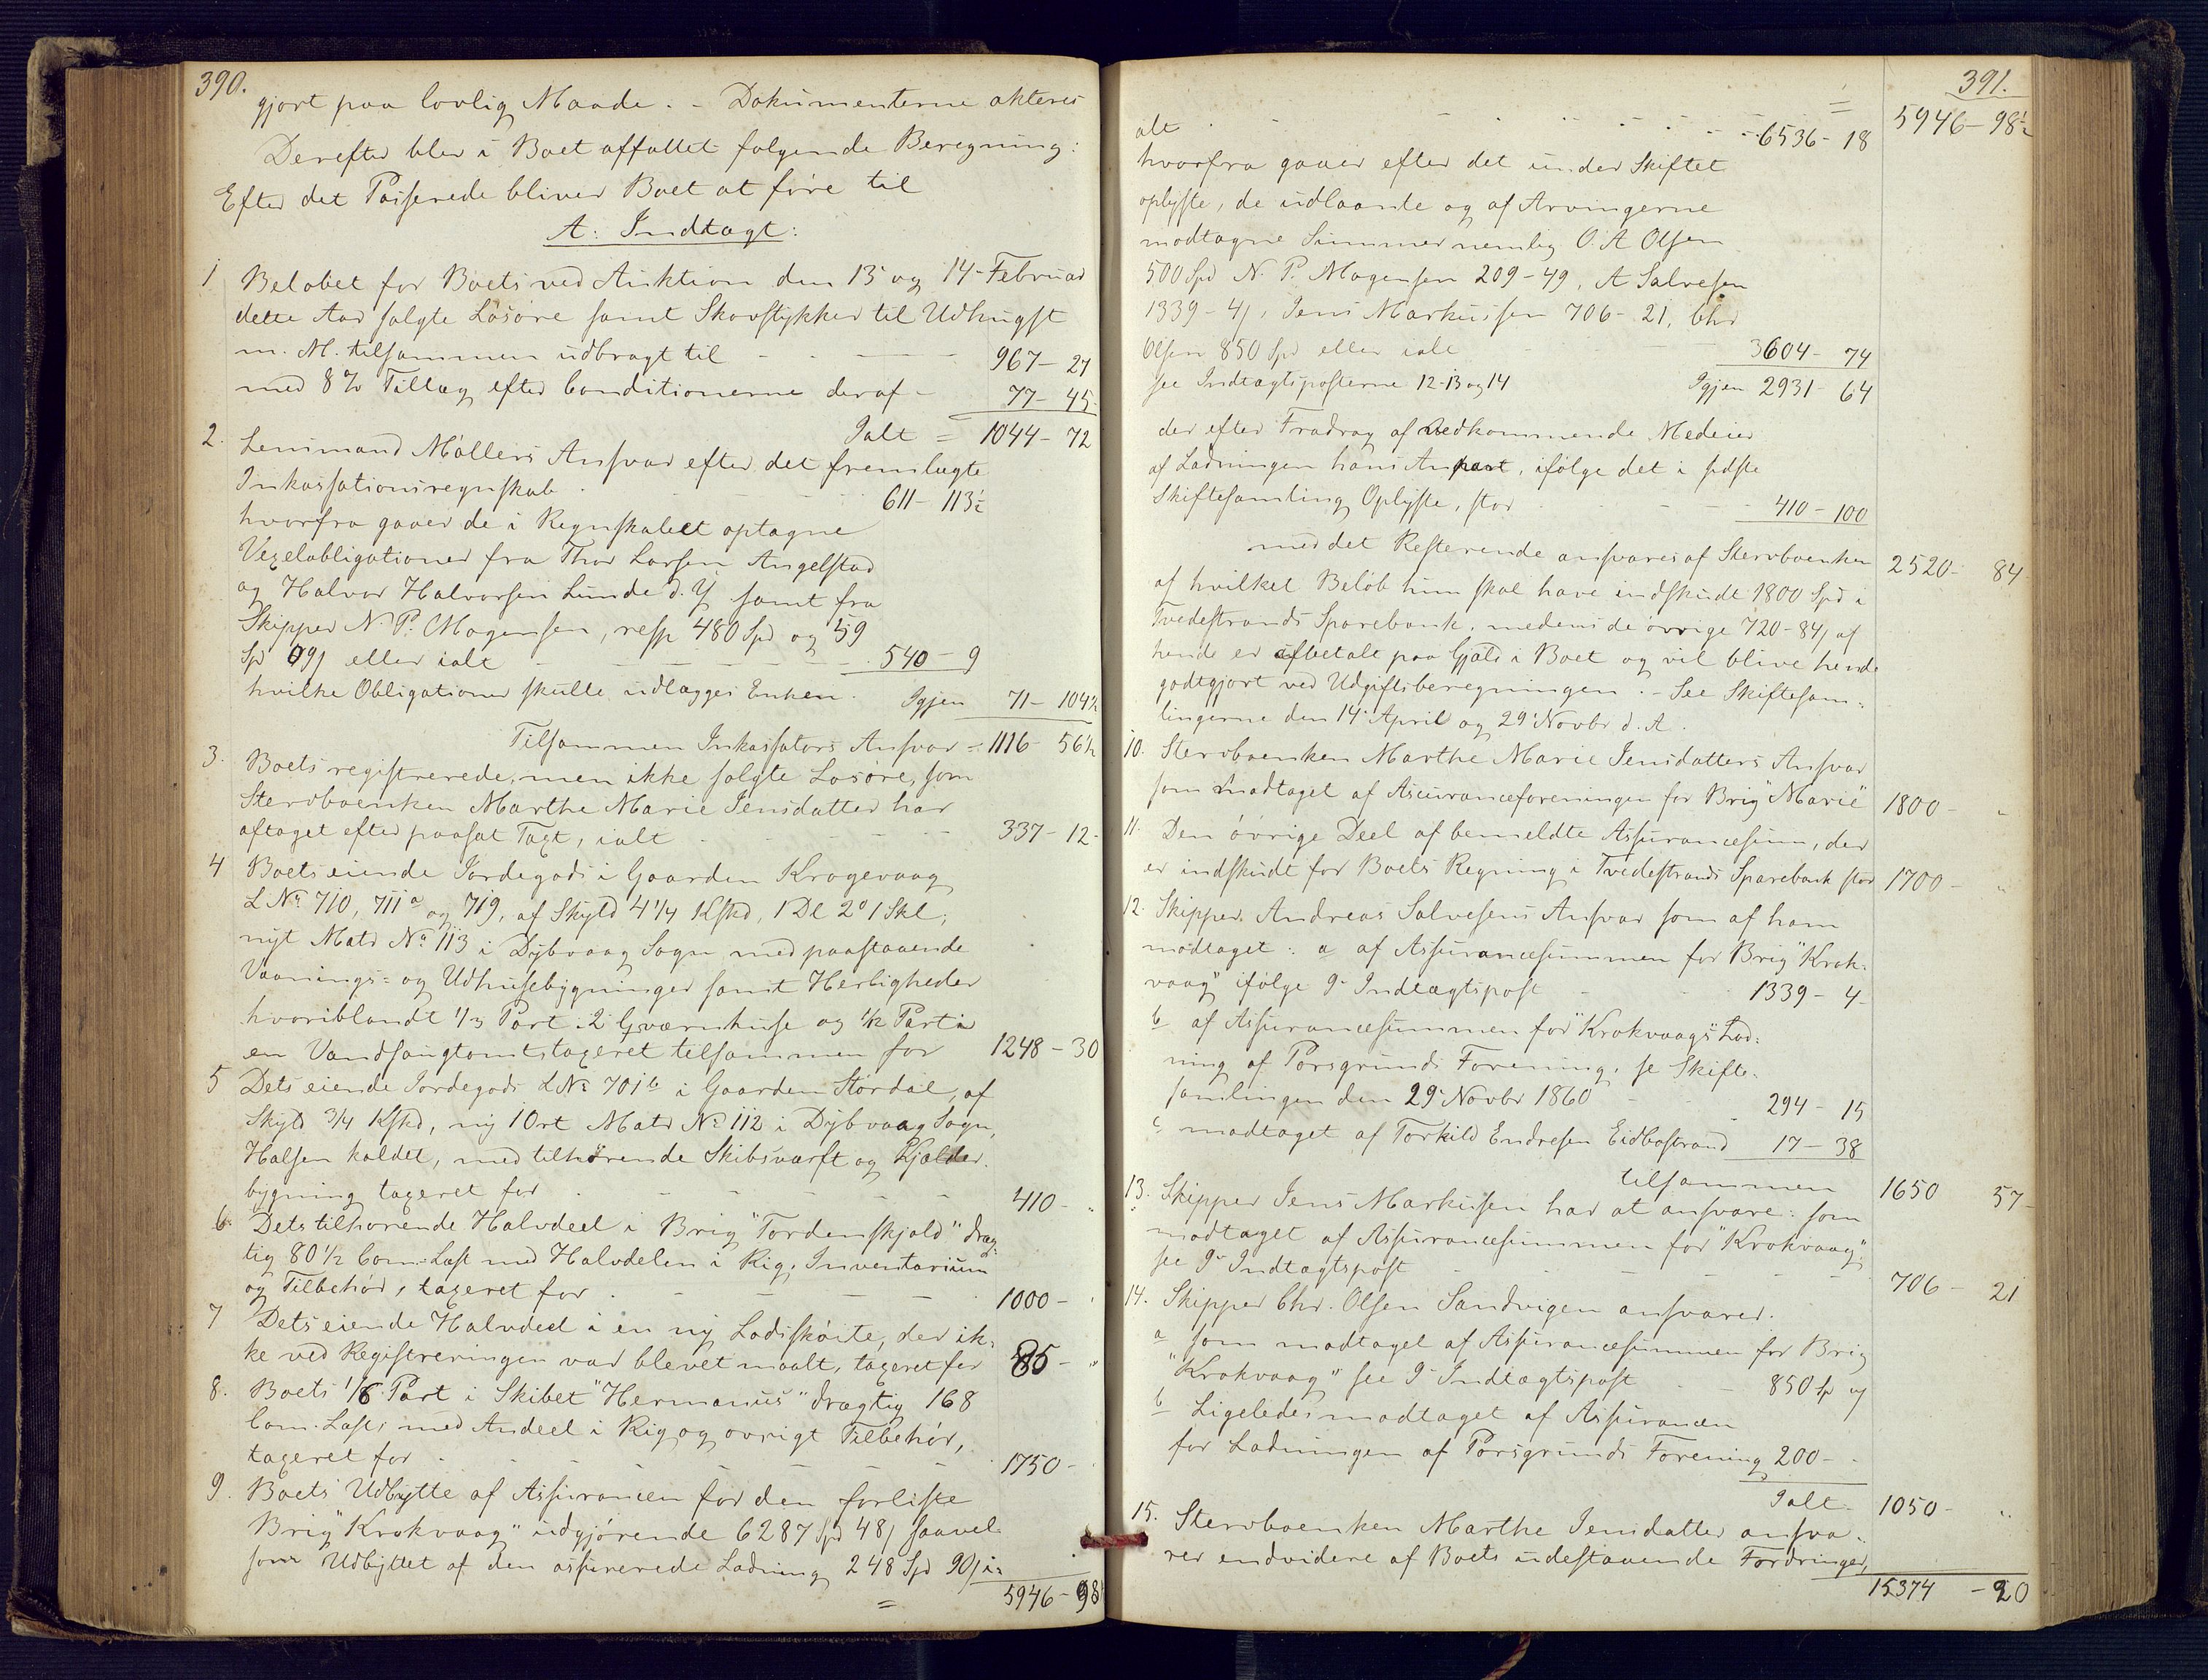 390.
gjort paa lovlig Maade. - Dokumenterne akteres
Derefter blev i Boet affattet følgende Beregning:
Efter det Passerede bliver Boet at føre til
A: Indtægt:
1 Beløbet for Boets ved Auktion den 13 og 14 Februar
dette Aar solgte Løsøre samt Skovstykker til Udhugst
m. M. tilsammen udbragt til - - - 967 - 27
med 8 % Tillæg efter Conditionerne deraf - 77 - 45
Ialt = 1044 - 72
2. Lensmand Møllers Ansvar efter det fremlagte
Inkassationsregnskab - - - 611 - 113½
hvorfra gaaer de i Regnskabet optagne
Vexelobligationer fra Thor Larsen Angelstad
og Halvor Halvorsen Lunde d. Y samt fra
Skipper N. P. Mogensen, resp 480 Spd og 59
Spd 99 eller ialt - - - 540 - 9
hvilke Obligationer skulle udlægges Enken. Igjen 71 - 104½
Tilsammen Inkassators Ansvar = 1116 - 56½
3. Boets registrerede, men ikke solgte Løsøre, som
Stervboenken Marthe Marie Jensdatter har
aftaget efter paasat Taxt, ialt - - - 337 - 12 -
4 Boets eiende Jordegods i Gaarden Krogevaag
L No 710, 711a og 719, af Skyld 4¼ Kskd, 1 Dl 2 o 1 Skl;
nyt Matr No 113 i Dybvaag Sogn med paastaaende
Vaanings- og Udhusebygninger samt Herligheder
hvoriblandt 1/3 Part i 2 Qværnhuse og ½ Part i
en Vandsaugtomt taxeret tilsammen for 1248 - 30
5 Dets eiende Jordegods L No 701b i Gaarden Stordal, af
Skyld ¾ Kskd, ny 1 Ort Matr No 112 i Dybvaag Sogn,
Halsen kaldet, med tilhørende Skibsværft og Kjælder-
bygning taxeret for - - - 410 - "
6. Dets tilhørende Halvdeel i Brig "Tordenskjold" dræg-
tig 80½ Com-Læst med Halvdelen i Rig, Inventarium
og Tilbehør, taxeret for - - - 1000 - "
7 Dets eiende Halvdeel i en ny Lodsskøite, der ik-
ke ved Registreringen var blevet maalt, taxeret for 85 - "
8. Boets 1/6 Part i Skibet "Hermanus" drægtig 168
Com. Læst, med Andeel i Rig og øvrigt Tilbehør,
taxeret for - - - 1750 -
9. Boets Udbytte af Assurancen for den forliste
Brig "Krokvaag" udgjørende 6287 Spd 48 saavel
som Udbyttet af den assurerede Ladning 248 Spd 90 i-
= 5946 - 98
391.
5946 - 98½
alt - - - 6536 - 18
hvorfra gaaer efter det under Skiftet
oplyste, de udlaante og af Arvingerne
modtagne Summer nemlig O. A Olsen
500 Spd N. P. Mogensen 209 - 49, A Salvesen
1339 - 4, Jens Markussen 706 - 21, Chr
Olsen 850 Spd eller ialt 3604 - 74
see Indtægtsposterne 12-13 og 14 Igjen 2931 - 64
der efter Fradrag af vedkommende Medeier
af Ladningen hans Anpart, ifølge det i sidste
Skiftesamling Oplyste, stor - - - 410 - 100
med det Resterende ansvares af Stervboenken 2520 - 84
af hvilket Beløb hun skal have indskudt 1800 Spd i
Tvedestrands Sparebank, medens de øvrige 720 - 84 af
hende er afbetalt paa Gjæld i Boet og vil blive hende
godtgjort ved Udgiftsberegningen. - See Skiftesam-
lingerne den 14 April og 29 Novbr d. A.
10. Stervboenken Marthe Marie Jensdatters Ansvar
som modtaget af Assuranceforeningen for Brig "Marie" 1800 - "
11. Den øvrige Deel af bemeldte Assurancesum, der
er indskudt for Boets Regning i Tvedestrands Sparebank stor 1700 - "
12. Skipper Andreas Salvesens Ansvar som af ham
modtaget: a af Assurancesummen for Brig "Krok-
vaag" ifølge 9 Indtægtspost - - 1339 - 4 -
b af Assurancesummen for "Krokvaags" Lad-
ning af Porsgrunds Forening, se Skifte-
samlingen den 29 Novbr 1860 - 294 - 15
c, modtaget af Torkild Endresen Eidbostrand 17 - 38
tilsammen 1650 57 -
13. Skipper Jens Markussen har at ansvare: som
modtaget af Assurancesummen for "Krokvaag",
see 9 Indtægtspost - - - 706 - 21
14. Skipper Chr. Olsen Sandvigen ansvarer.
a som modtaget af Assurancesummen for Brig
"Krokvaag" see 9 Indtægtspost - - 850 Sp og
b Ligeledes modtaget af Assurancen
for Ladningen af Porsgrunds Forening 200 -
Ialt - 1050 - "
15. Stervboenken Marthe Jensdatter ansva-
rer endvidere af Boets udestaaende Fordringer,
15374 - 20